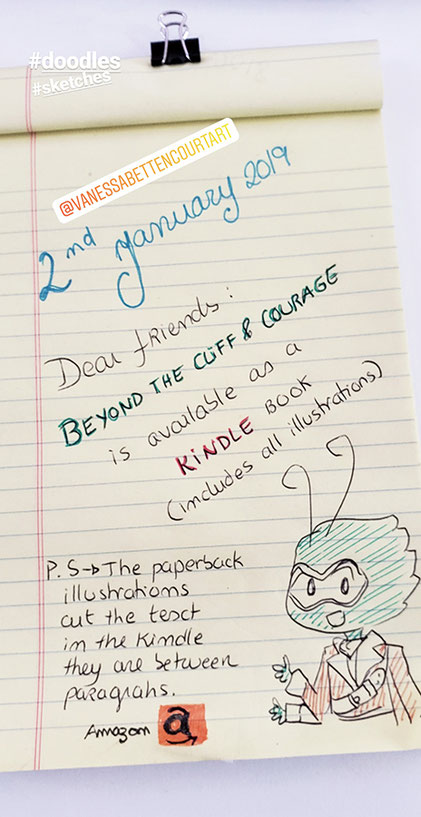 #doodles
#sketches
@VANESSABETTENCOURTART
2nd January 2019
Dear friends:
BEYOND THE CLIFF & COURAGE
is available as a
KINDLE BOOK
(includes all illustrations)
P.S → The paperback
illustrations
cut the text
in the Kindle
they are between
paragrahs.
Amazon a